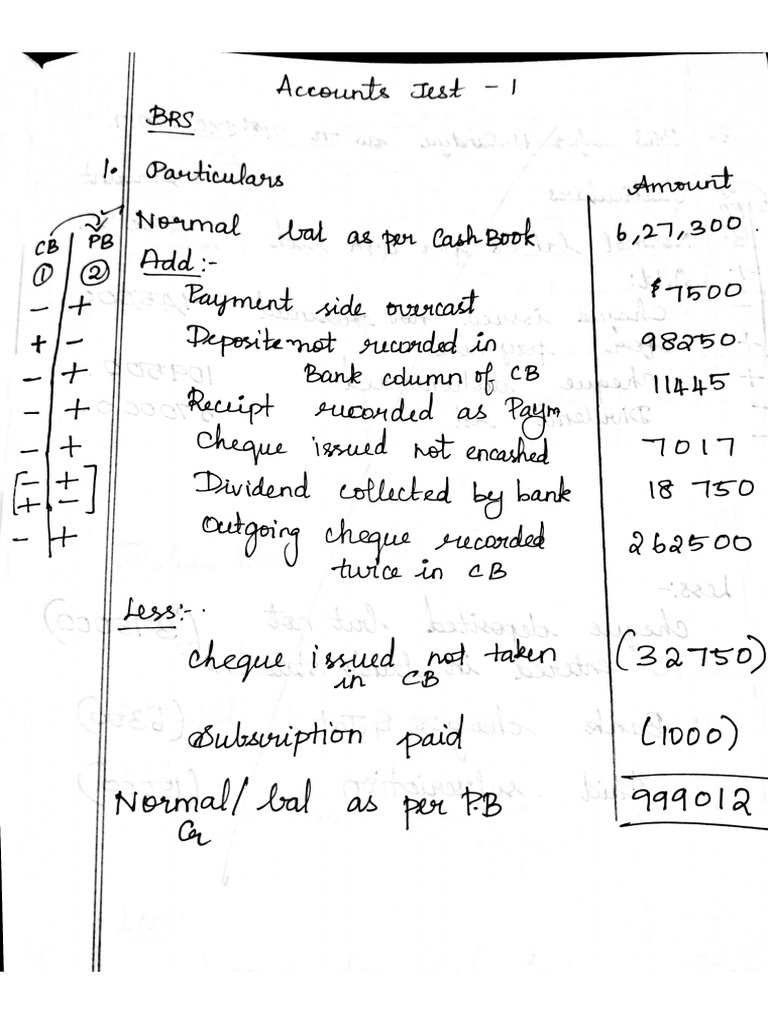 Accounts Test - 1
BRS
1. Particulars Amount
Normal bal as per Cash Book 6,27,300.
CB PB
① ②
Add:-
- + Payment side overcast 7500
+ - Deposite not recorded in 98250
Bank column of CB
- + Receipt recorded as Paym 11445
- + Cheque issued not encashed 7017
- + Dividend collected by bank 18 750
[- +]
[+ -]
- + Outgoing cheque recorded 262500
twice in CB
Less:-
Cheque issued not taken (32750)
in CB
Subscription paid (1000)
Normal/ bal as per P.B 999012
Cr